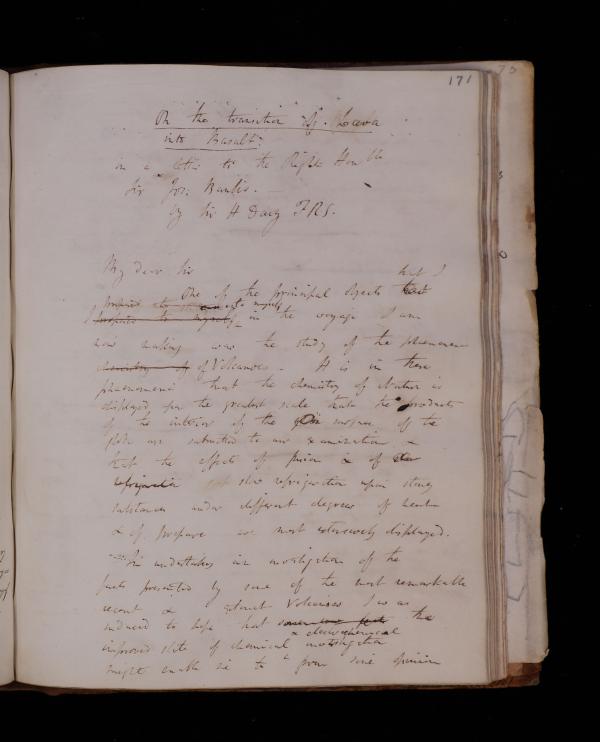 171
On the transition of Lava
into Basalt.
in a letter to the Right Honble
Sir Jos: Banks.
by Sir H Davy FRS.
My dear Sir
One of the principal objects that I
proposed to myself
I proposed to myself in the voyage I am
now making was the study of the phænomena
chemistry of of Volcanoes. It is in these
phaenomena that the chemistry of Nature is
displayed upon the greatest scale that the products
of the interior of the surface of the
globe are submitted to our examination &
that the effects of fusion & of slow
refrigeratio slow refrigeration upon stony
substances under different degrees of heat
& of pressure are most extensively displayed.
In undertaking an investigation of the
facts presented by some of the most remarkable
recent & extinct Volcanoes I was
induced to hope that the
& electrochemical
improved state of chemical investigation
might enable me to form some opinion